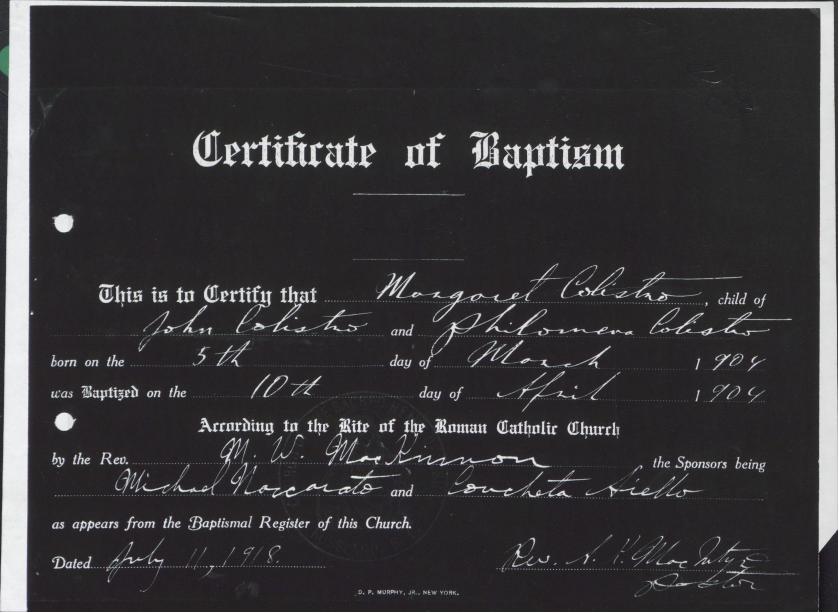 Certificate of Baptism
This is to Certify that Margaret Colistro, child of
John Colistro and Philomena Colistro
born on the 5th day of March 1904
was Baptized on the 10th day of April 1904
According to the Rite of the Roman Catholic Church
by the Rev. M. W. MacKinnon the Sponsors being
Michael Naccarato and Concheta Aiello
as appears from the Baptismal Register of this Church.
Dated July 11, 1918. Rev. A. K. MacIntyre
Pastor
D. P. MURPHY, JR., NEW YORK.